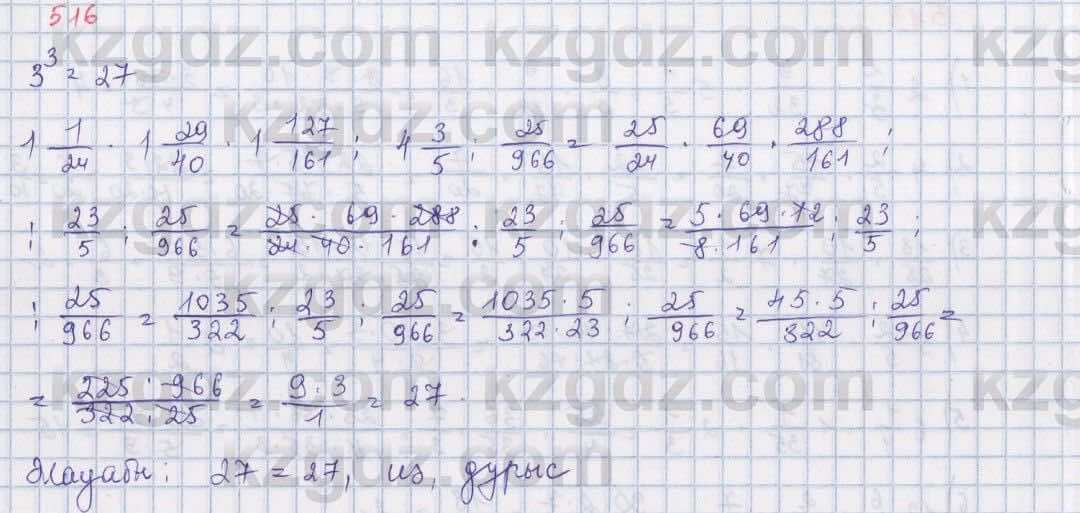 516
3³ = 27
1 1/24 · 1 29/40 · 1 127/161 : 4 3/5 : 25/966 = 25/24 · 69/40 · 288/161 :
: 23/5 : 25/966 = 25 · 69 · 288/24 · 40 · 161 : 23/5 : 25/966 = 5 · 69 · 12/8 · 161 : 23/5 :
: 25/966 = 1035/322 : 23/5 : 25/966 = 1035 · 5/322 · 23 : 25/966 = 45 · 5/322 : 25/966 =
= 225 · 966/322 · 25 = 9 · 3/1 = 27.
Жауабы: 27 = 27, из, дұрыс
kzgdz.com